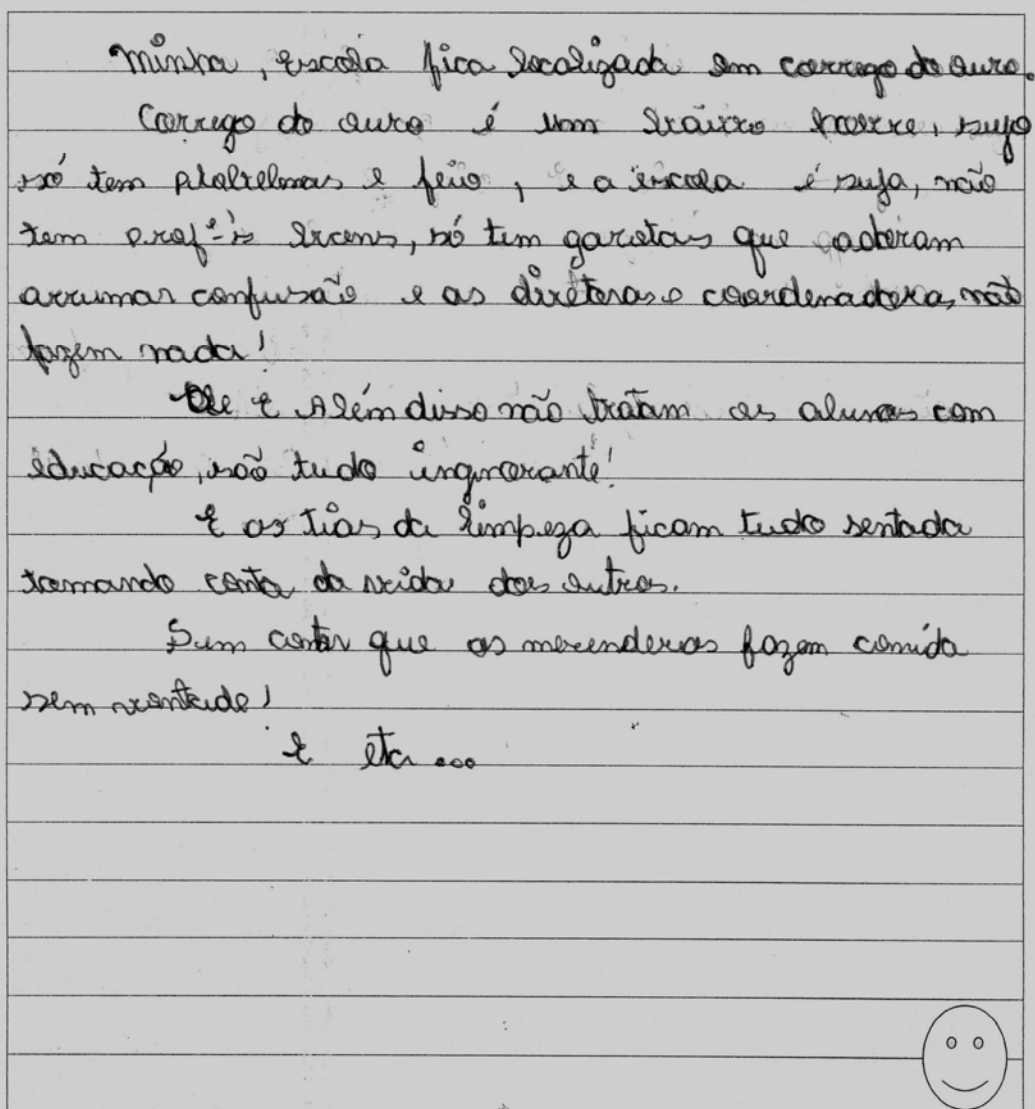 Minha, escola fica localizada em corrego do ouro.
Corrego do ouro é um bairro pobre, sujo
só tem plobelmas e feio, e a escola é suja, não
tem prof-s bons, só tem garotas que adoram
arrumar confusão e as diretoras e coordenadora, não
fazem nada!
E Além disso não tratam os alunos com
educação, são tudo inginorante!
E as tias da limpeza ficam tudo sentada
tomando conta da vida dos outros.
Sem contar que as merenderas fazem comida
sem vontade!
E etc...